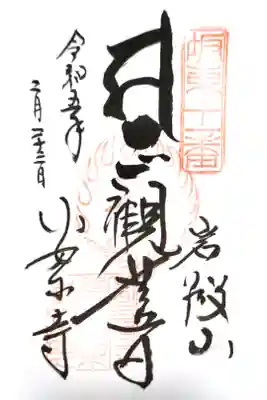 坂東十一番
岩殿山
聖観世音
令和五年
二月二十三日
安楽寺